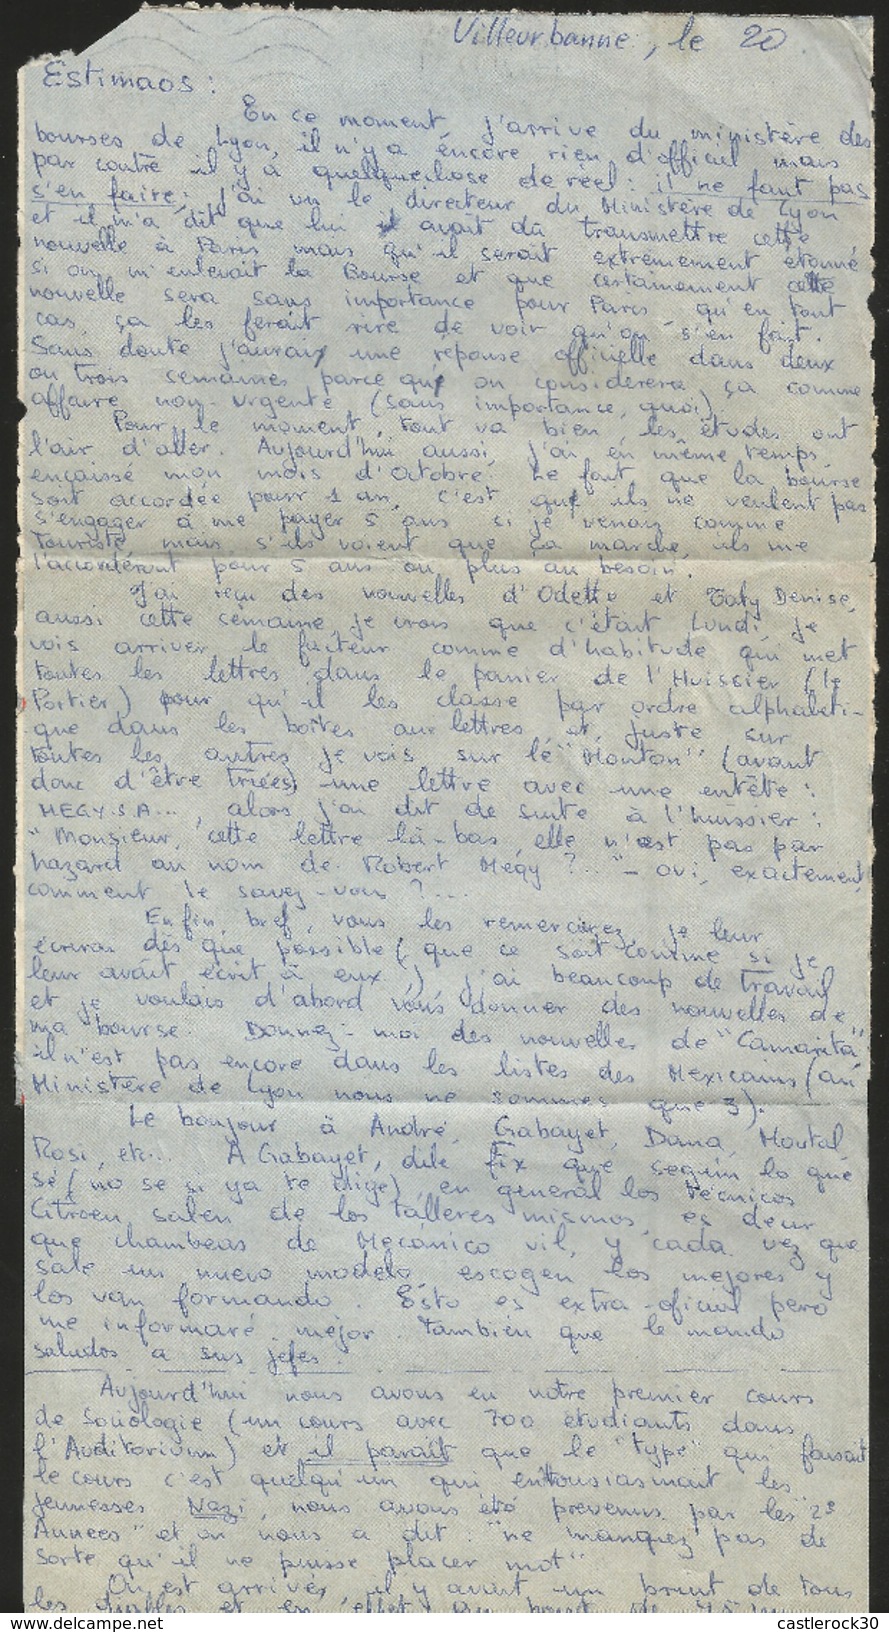 Villeurbanne, le 20
Estimaos :
En ce moment, j'arrive du ministère des
bourses de Lyon, il n'y a encore rien d'officiel mais
par contre il y a quelquechose de réel : il ne faut pas
s'en faire ; j'ai vu le directeur du Ministère de Lyon
et il m'a dit que lui avait dû transmettre cette
nouvelle à Paris mais qu'il serait extrêmement étonné
si on m'enlevait la Bourse et que certainement cette
nouvelle sera sans importance pour Paris qu'en tout
cas, ça les ferait rire de voir qu'on s'en fait.
Sans doute j'aurais une réponse officielle dans deux
ou trois semaines parce qu' on considerera ça comme
affaire non-urgente (sans importance, quoi)
Pour le moment, tout va bien, les études ont
l'air d'aller. Aujourd'hui aussi, j'ai en même temps
encaissé mon mois d'Octobre. Le fait que la bourse
soit accordée pour 1 an, c'est que ils ne veulent pas
s'engager à me payer 5 ans si je venais comme
touriste mais s'ils voient que ça marche, ils me
l'accorderont pour 5 ans ou plus au besoin.
J'ai reçu des nouvelles d'Odette et Taty Denise,
aussi cette semaine, je crois que c'était Lundi, je
vois arriver le facteur comme d'habitude qui met
toutes les lettres dans le panier de l'Huissier (le
Portier) pour qu'il les classe par ordre alphabéti-
que dans les boîtes aux lettres, et, juste sur
toutes les autres je vois sur le "Monton" (avant
donc d'être triées) une lettre avec une entête :
MEGY.S.A..., alors j'ai dit de suite à l'huissier :
"Monsieur, cette lettre là-bas, elle n'est pas par
hazard au nom de Robert Megy ?..." - oui, exactement,
comment le savez-vous ?...
Enfin, bref, vous les remercierez, je leur
écrirai dès que possible (que ce soit comme si je
leur avait écrit à eux.), j'ai beaucoup de travail
et je voulais d'abord vous donner des nouvelles de
ma bourse. Donnez-moi des nouvelles de "Camarita"
il n'est pas encore dans les listes des Mexicains (au
Ministère de Lyon nous ne sommes que 3).
Le bonjour à André, Gabayet, Dana, Moutal,
Rosi, etc... A Gabayet, dile Fix que según lo que
sé (no se si ya te dige), en general los técnicos
Citroen salen de los talleres mismos, es decir
que chambeas de Mecánico vil, y cada vez que
sale un nuevo modelo, escogen los mejores y
los van formando. Esto es extra-oficial pero
me informaré mejor. También que le mando
saludos a sus jefes.
Aujourd'hui nous avons eu notre premier cours
de Sociologie (un cours avec 700 étudiants dans
l'Auditorium) et il paraît que le "type" qui faisait
le cours c'est quelqu'un qui enthousiasmait les
jeunesses Nazi, nous avons été prévenus par les "2e
Années" et on nous a dit : "ne manquez pas de
sorte qu'il ne puisse placer mot"
On est arrivés, il y avait un bruit de tous
les diables et en effet, au bout de 45
www.delcampe.net
castlerock30